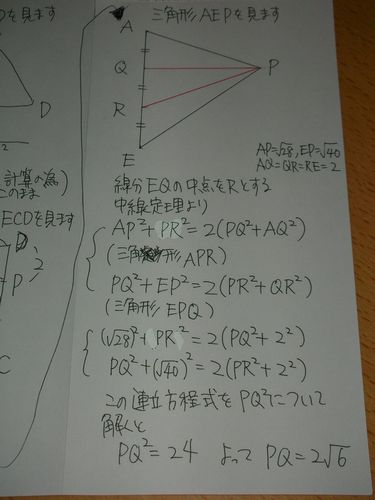 を見ます
D
計算の為
このまま
ECDを見ます
D
2
P
C
三角形AEPを見ます
A
Q
P
R
E
AP=√28, EP=√40
AQ=QR=RE=2
線分EQの中点をRとする
中線定理より
AP²+PR²=2(PQ²+AQ²)
(三角形APR)
PQ²+EP²=2(PR²+QR²)
(三角形EPQ)
(√28)²+PR²=2(PQ²+2²)
PQ²+(√40)²=2(PR²+2²)
この連立方程式をPQ²について
解くと
PQ²=24 よって PQ=2√6